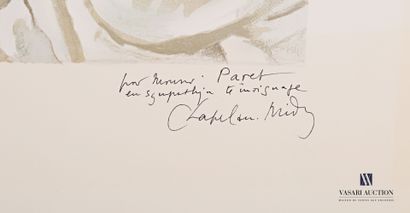 pour Monsieur Paret
en sympathique témoignage
Chapelain-Midy
VASARI AUCTION